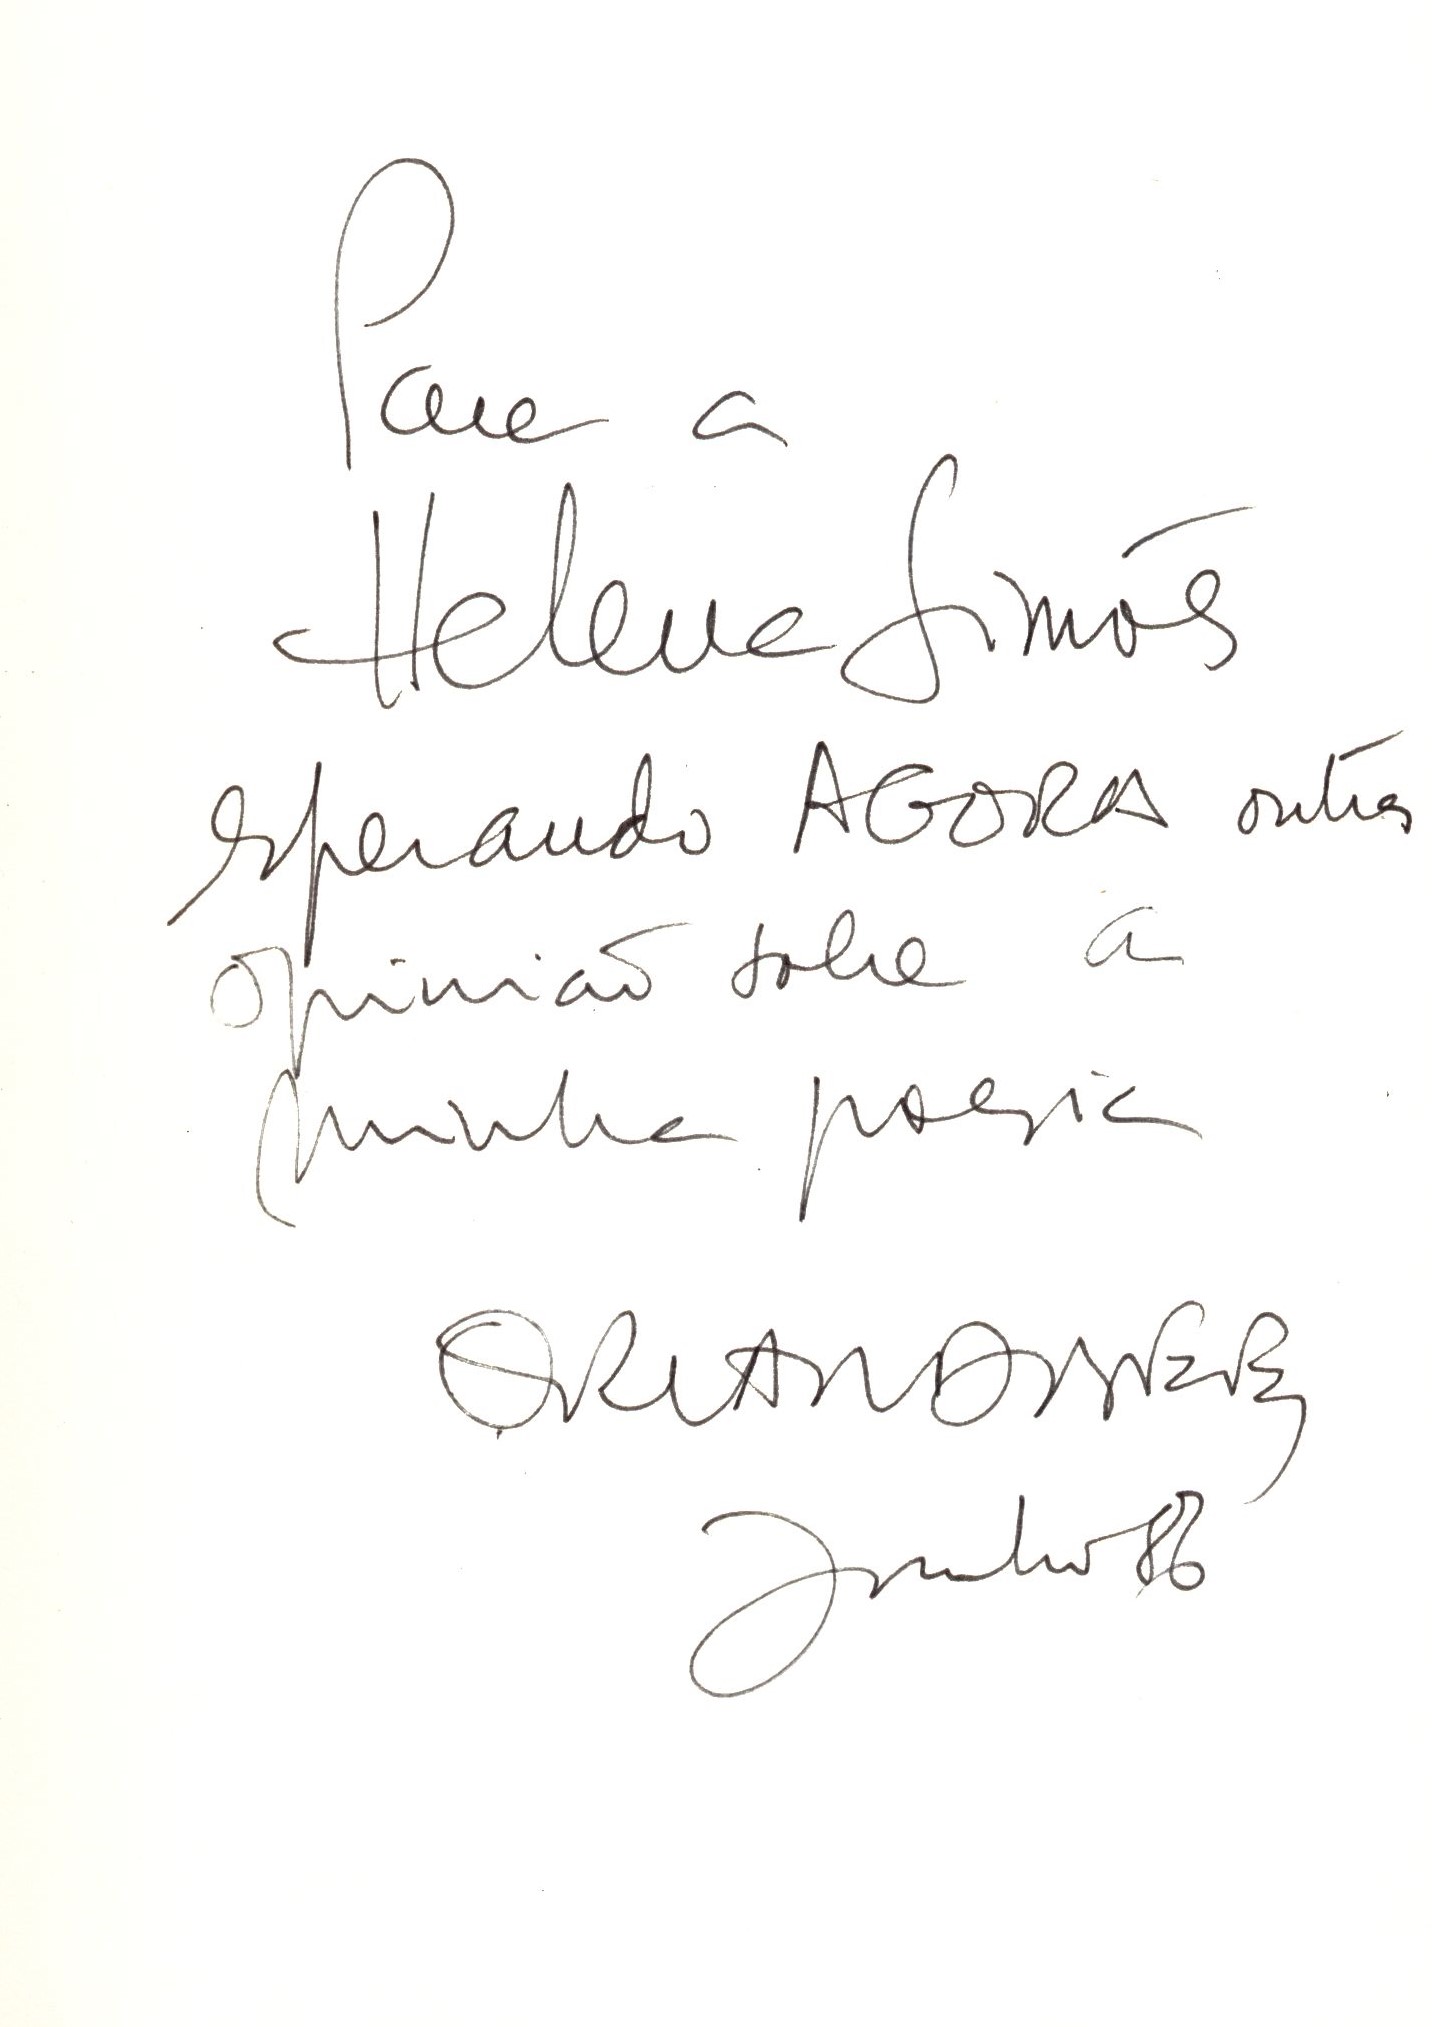 Para a
Helena Simões
esperando AGORA outra
opinião sobre a
minha poesia
ORLANDO NEVES
Junho 86